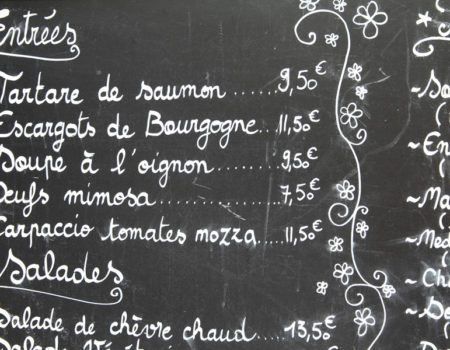 Entrées
Tartare de saumon......9,50€
Escargots de Bourgogne..11,50€
Soupe à l'oignon.......9,50€
Oeufs mimosa..........7,50€
Carpaccio tomates mozza....11,50€
Salades
Salade de chèvre chaud....13,50€